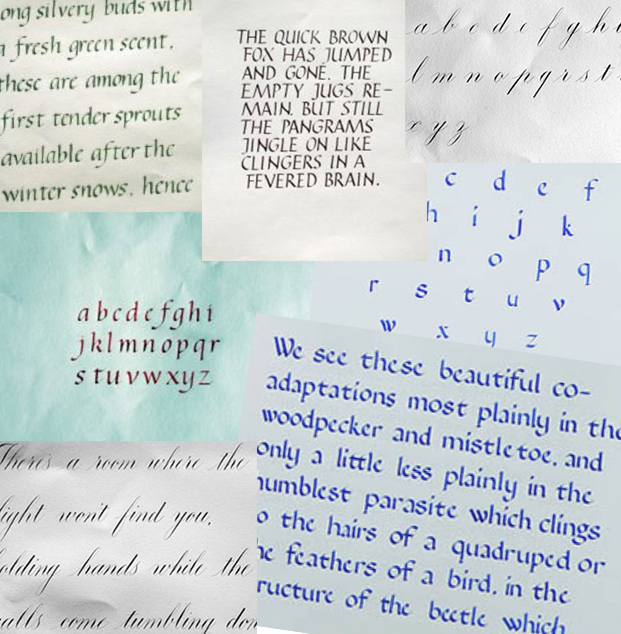 ong silvery buds with
a fresh green scent.
these are among the
first tender sprouts
available after the
winter snows. hence
THE QUICK BROWN
FOX HAS JUMPED
AND GONE. THE
EMPTY JUGS RE-
MAIN. BUT STILL
THE PANGRAMS
JINGLE ON LIKE
CLINGERS IN A
FEVERED BRAIN.
a b c d e f g h i
l m n o p q r s t
x y z
c d e f
h i j k
n o p q
r s t u v
w x y z
a b c d e f g h i
j k l m n o p q r
s t u v w x y z
We see these beautiful co-
adaptations most plainly in the
woodpecker and mistletoe. and
only a little less plainly in the
humblest parasite which clings
o the hairs of a quadruped or
he feathers of a bird. in the
ructure of the beetle which
There's a room where the
light won't find you,
olding hands while the
alls come tumbling dow